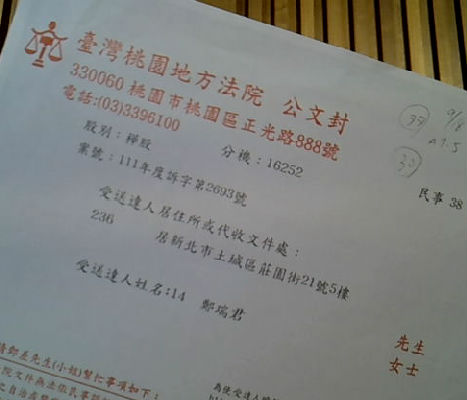 臺灣桃園地方法院 公文封
330060 桃園市桃園區正光路888號
電話:(03)3396100
股別：樺股 分機：16252
案號：111年度訴字第2693號
民事 38
受送達人居住所或代收文件處：
236 居新北市土城區莊園街21號5樓
受送達人姓名:14 鄭瑞君
先生
女士
請郵差先生(小姐)幫忙事項如下：